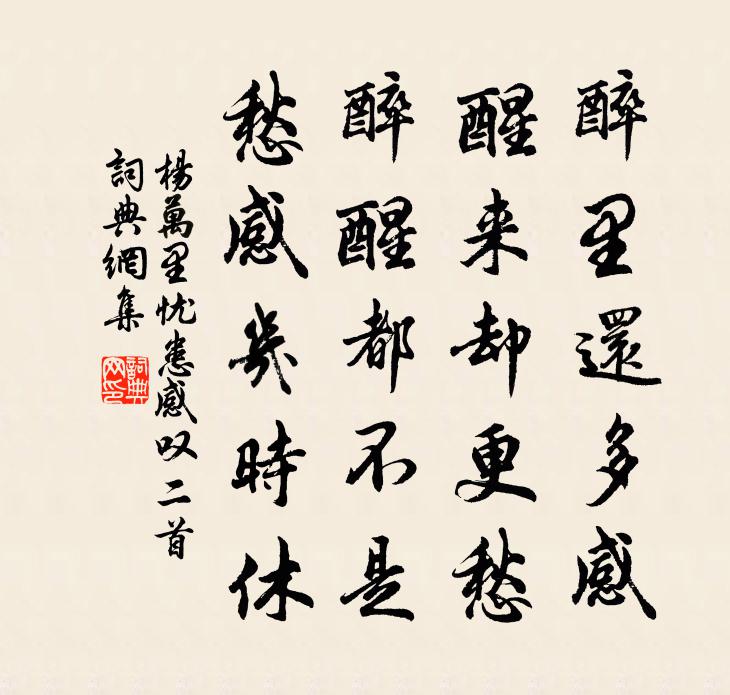 醉里還多感
醒来却更愁
醉醒都不是
愁感幾時休
楊萬里忧患感叹二首
詞典網集
詞典網印